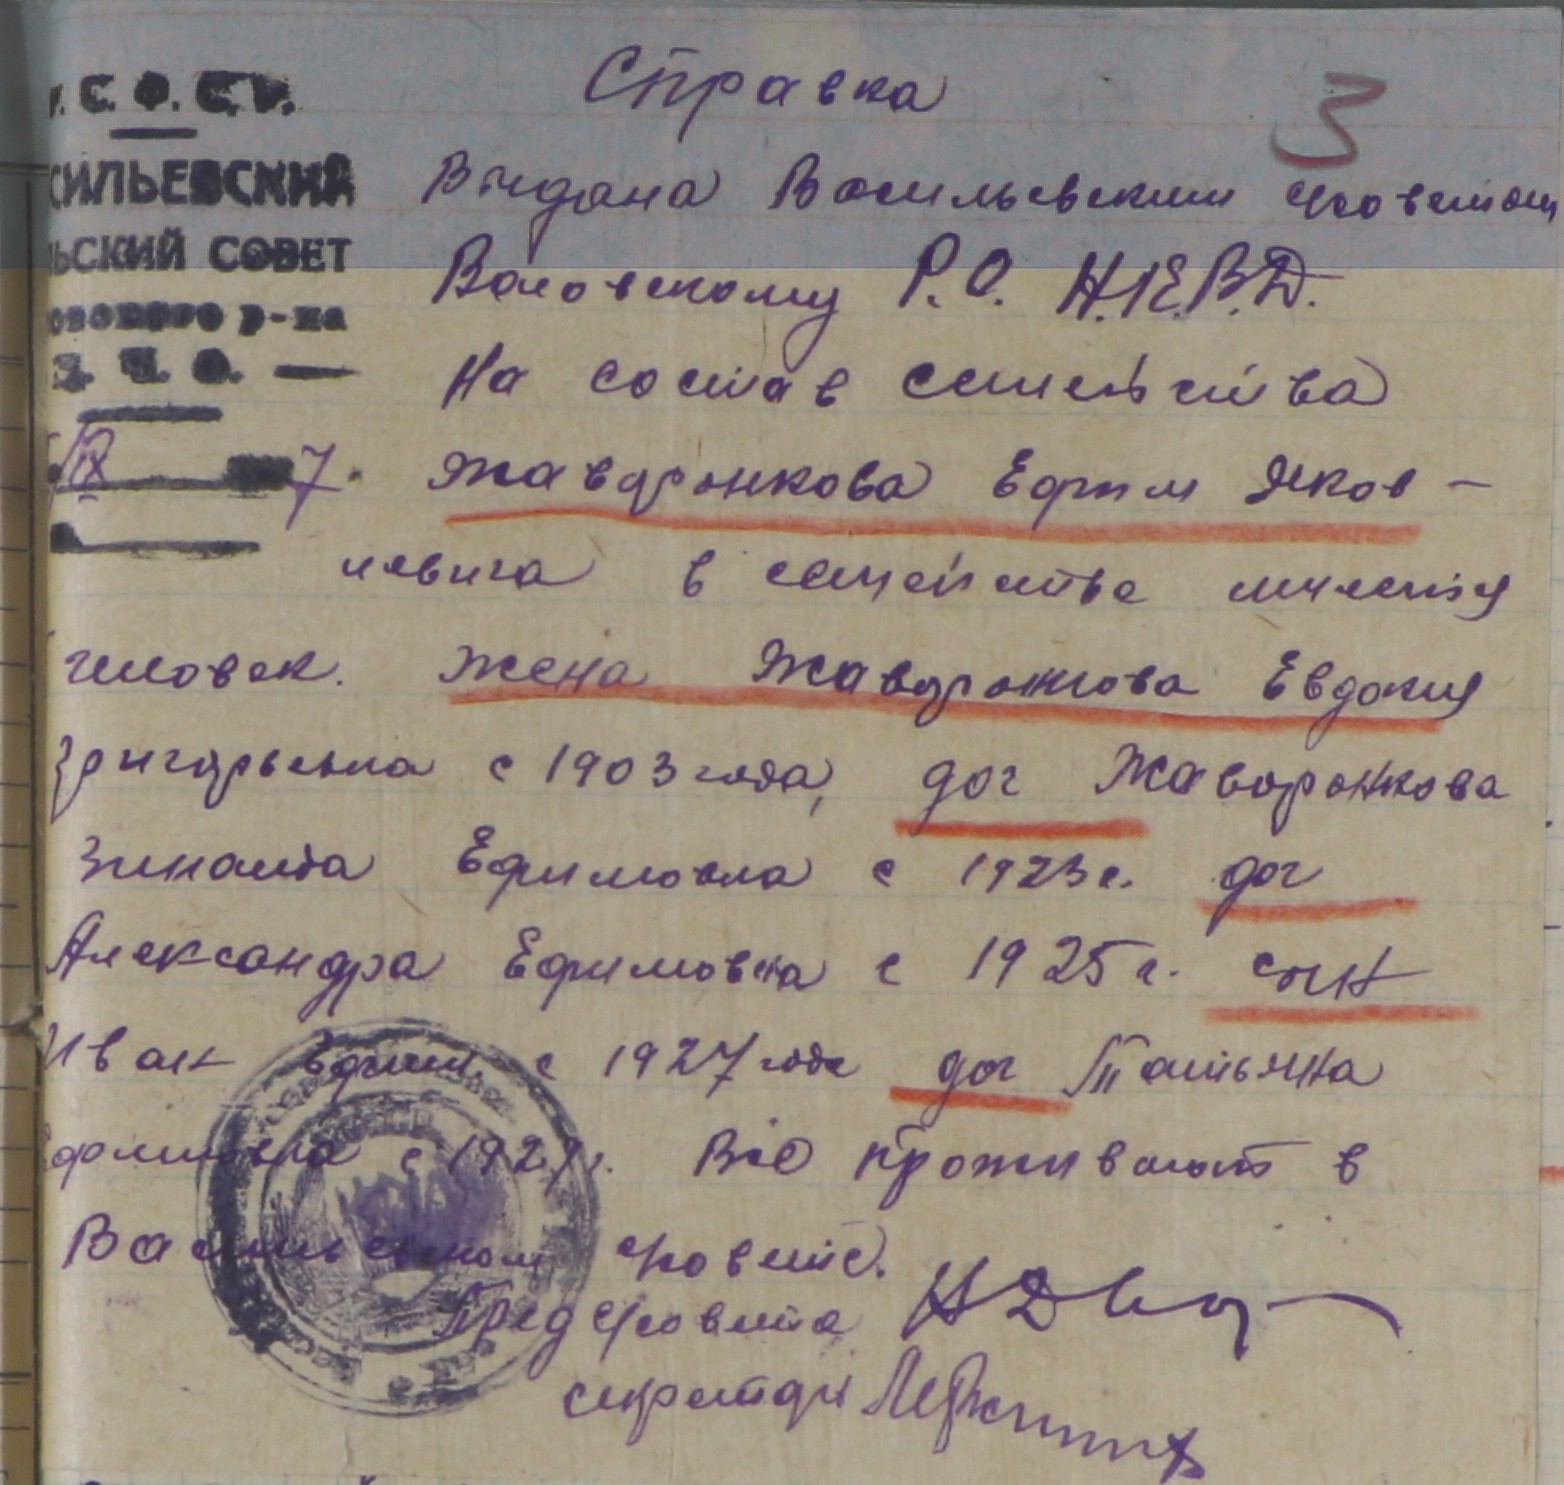 Справка
3
.С.Ф.С.Р.
СИЛЬЕВСКИЙ
ЬСКИЙ СОВЕТ
овского р-на
Ч. О.
IX 7.
Выдана Васильевским с/советом
Воловскому Р.О. Н.К.В.Д.
На состав семейства
Жаворонкова Ефим Яков-
левича в семействе
человек. Жена Жаворонкова Евдокия
Григорьевна с 1903 года, доч Жаворонкова
Зинаида Ефимовна с 1923 г. доч
Александра Ефимовна с 1925 г. сын
Иван Ефим. с 1927 года доч Татьяна
Ефимовна с 192 г. Все проживают в
Васильевском с/совете.
Пред с/совета
секретарь